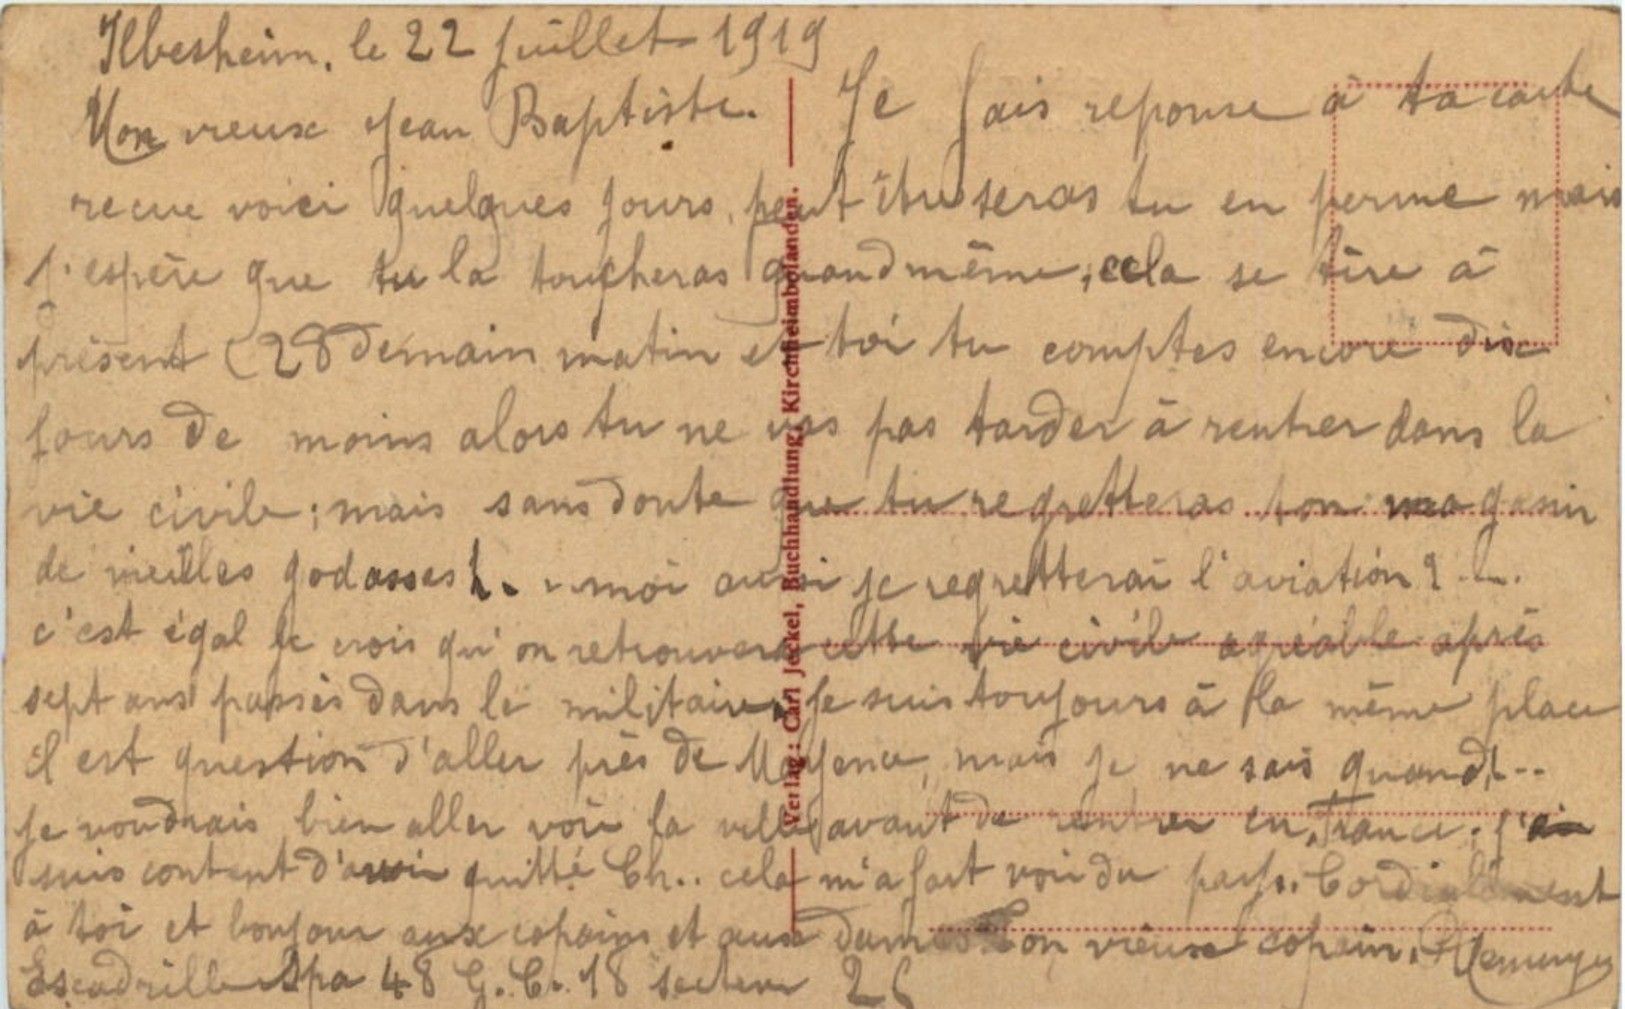 Ilbesheim, le 22 juillet 1919
Mon vieux Jean Baptiste. Je fais reponse à ta carte
recue voici quelques jours, peut être seras tu en perme mais
j'espère que tu la toucheras quand même, cela se tire à
présent (28 demain matin et toi tu comptes encore dix
jours de moins alors tu ne vas pas tarder à rentrer dans la
vie civile; mais sans doute que tu regretteras ton magasin
de vieilles godasses !. moi aussi je regretterai l'aviation ? !..
c'est égal je crois qu'on retrouvera cette vie civile agréable après
sept ans passés dans le militaire, je suis toujours à la même place
il est question d'aller près de Mayence, mais je ne sais quand!..
je voudrais bien aller voir la ville avant de rentrer en France; j'ai
suis content d'avoir quitté Ch.. cela m'a fait voir du pays. Cordialement
à toi et bonjour aux copains et aux dames Ton vieux copain.
Escadrille Spa 48 G.C. 18 secteur
Verlag: Carl Jeckel, Buchhandlung, Kirchheimbolanden.